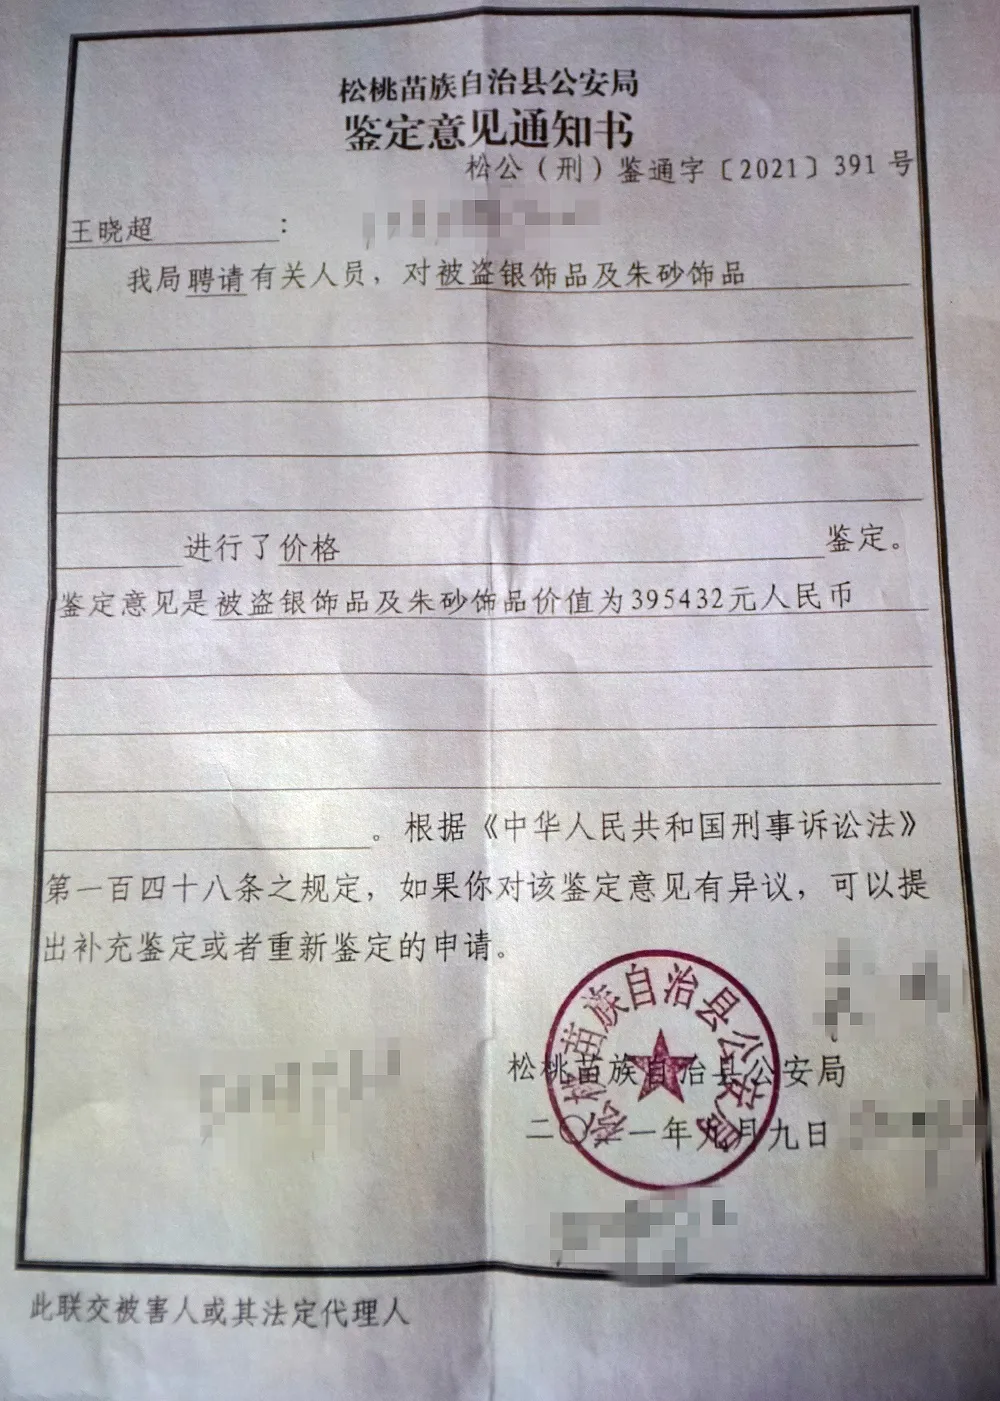 松桃苗族自治县公安局
鉴定意见通知书
松公（刑）鉴通字〔2021〕391 号
王晓超：
我局聘请有关人员，对被盗银饰品及朱砂饰品
进行了价格 鉴定。
鉴定意见是被盗银饰品及朱砂饰品价值为395432元人民币
。根据《中华人民共和国刑事诉讼法》
第一百四十八条之规定，如果你对该鉴定意见有异议，可以提
出补充鉴定或者重新鉴定的申请。
松桃苗族自治县公安局
松桃苗族自治县公安局
二〇二一年九月九日
此联交被害人或其法定代理人